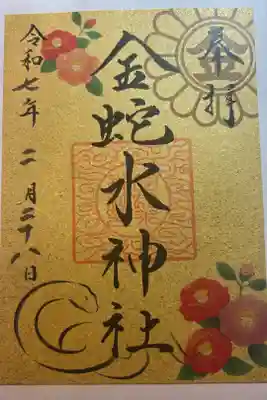 奉拝
金蛇水神社
令和七年 二月二十八日